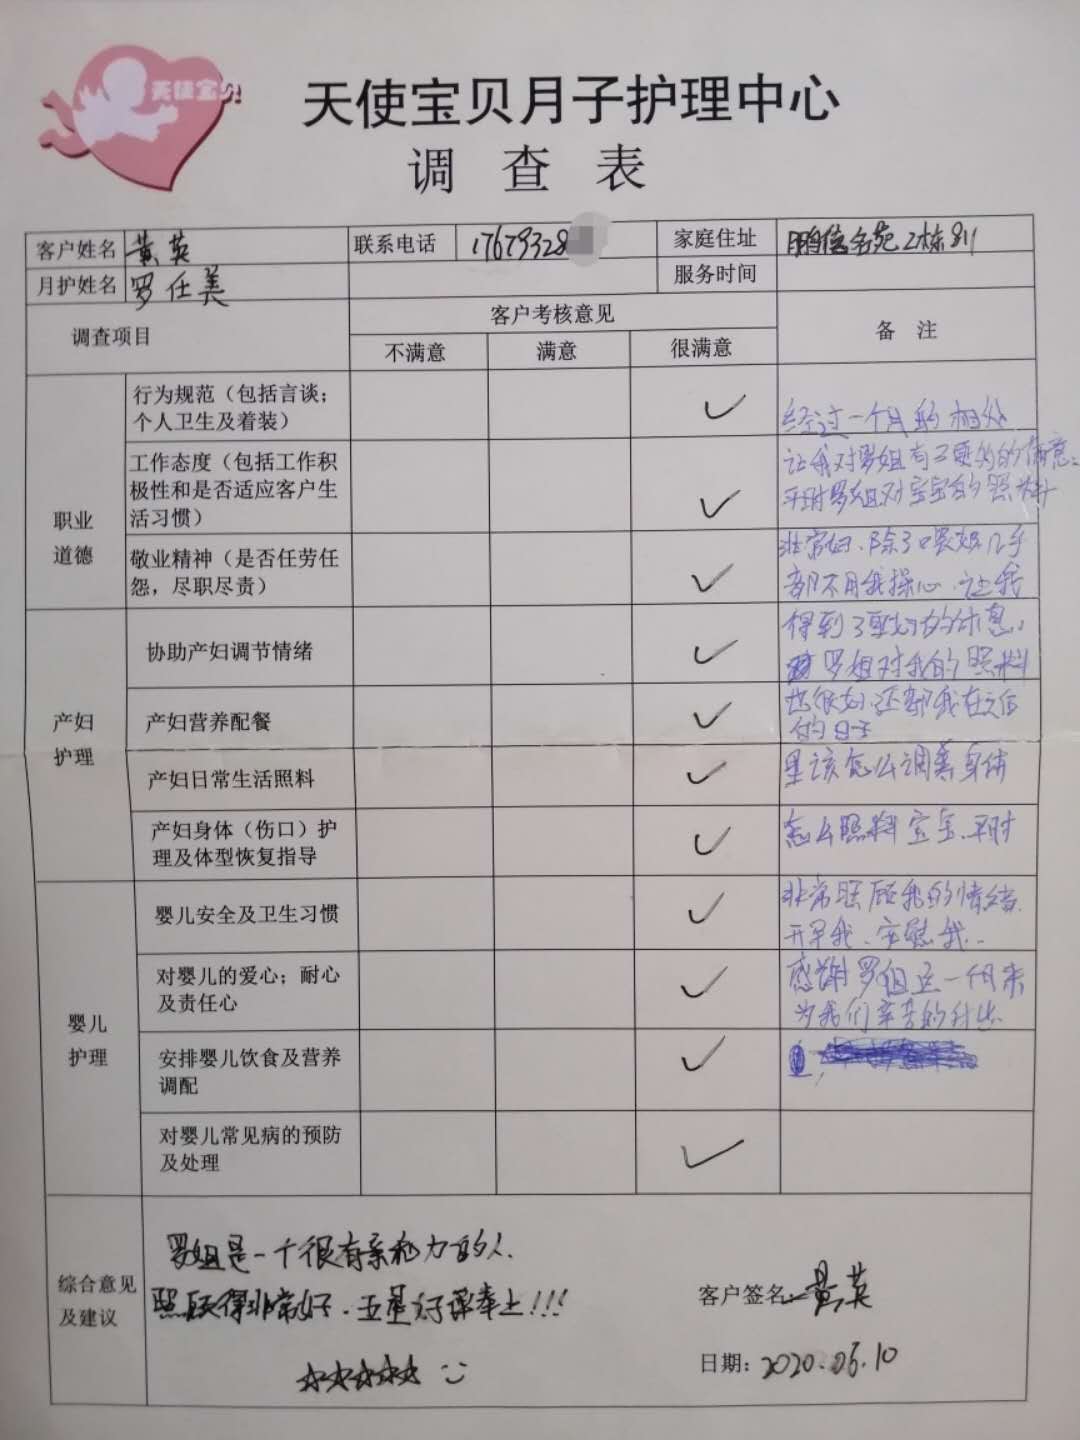 天使宝贝
天使宝贝月子护理中心
调 查 表
客户姓名 黄英 联系电话 17679328 家庭住址 鹏信名苑2栋811
月护姓名 罗任美 服务时间
调查项目 客户考核意见 备 注
不满意 满意 很满意
职业
道德
行为规范（包括言谈；
个人卫生及着装） ✓
工作态度（包括工作积
极性和是否适应客户生
活习惯） ✓
敬业精神（是否任劳任
怨，尽职尽责） ✓
产妇
护理
协助产妇调节情绪 ✓
产妇营养配餐 ✓
产妇日常生活照料 ✓
产妇身体（伤口）护
理及体型恢复指导 ✓
婴儿
护理
婴儿安全及卫生习惯 ✓
对婴儿的爱心；耐心
及责任心 ✓
安排婴儿饮食及营养
调配 ✓
对婴儿常见病的预防
及处理 ✓
经过一个月的相处
让我对罗姐有了更多的的满意。
平时罗姐对宝宝的照料
非常好、除了喂奶几乎
都不用我操心、让我
得到了更好的休息。
罗姐对我的照料
也很好、还
的日子
里该怎么调养身体
怎么照料宝宝、平时
非常照顾我的情绪、
开导我、安慰我..
感谢罗姐这一个月来
为我们辛苦的付出
综合意见
及建议
罗姐是一个很有亲和力的人、
照顾得非常好、五星好评奉上!!!
☆☆☆☆☆
客户签名: 黄英
日期: 2020.06.10